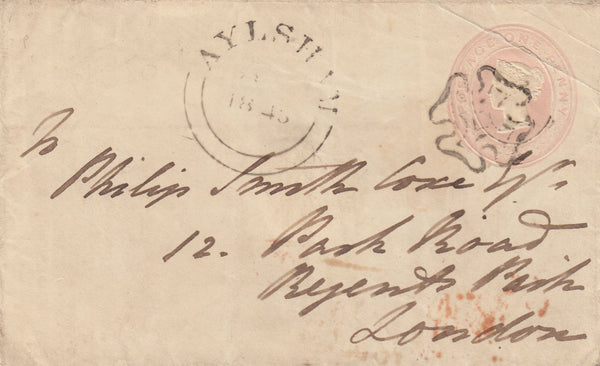 AYLSHAM
1843
POSTAGE ONE PENNY
To
Philip Smith Coxe Esqre
12. Park Road
Regents Park
London